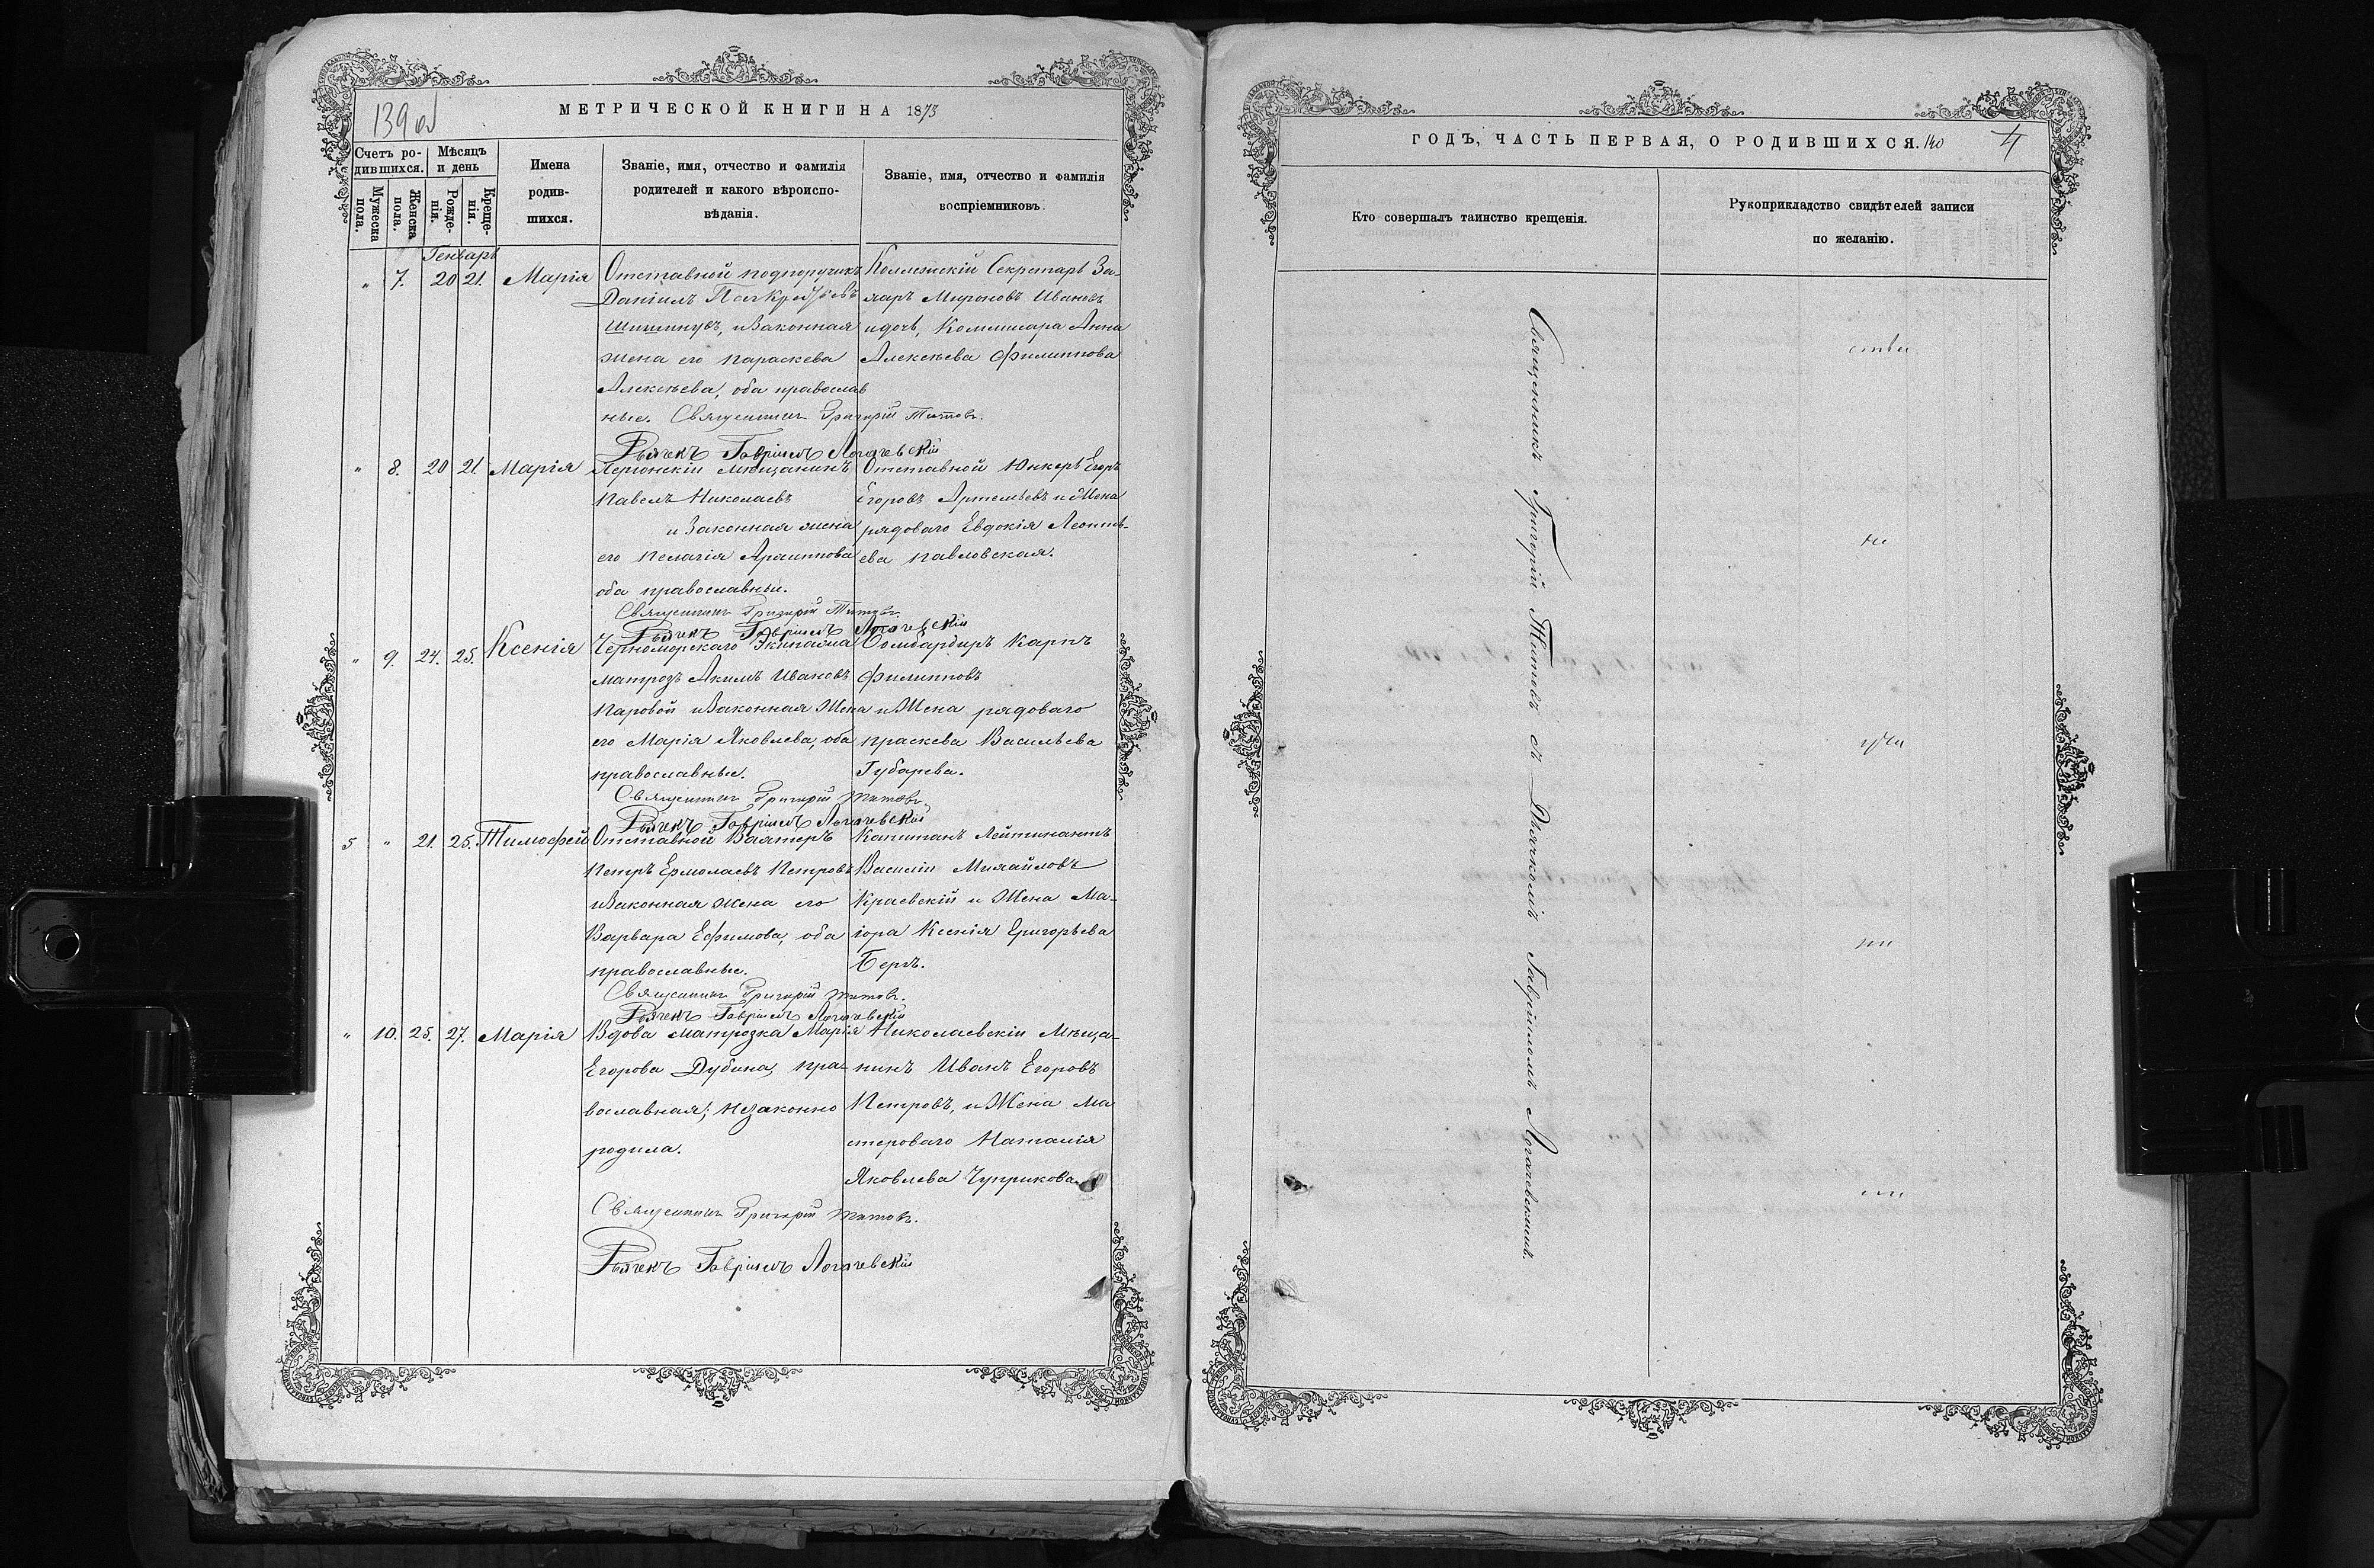 139 об
МЕТРИЧЕСКОЙ КНИГИ НА 1873
Счетъ ро-
дившихся.
Мѣсяцъ
и день
Мужеска
пола.
Женска
пола.
Рожде-
нія.
Креще-
нія.
Имена
родив-
шихся.
Званіе, имя, отчество и фамилія
родителей и какого вѣроиспо-
вѣданія.
Званіе, имя, отчество и фамилія
воспріемниковъ.
Генварь
" 7. 20 21. Марія Отставной подпоручикъ Коллежскій Секретарь За-
Даніилъ харъ Мироновъ Ивановъ
и Законная и дочь, Коммисара Анна
жена его Параскева Алексѣева Филиппова
Алексѣева, оба православ
ные. Священникъ Григорій Титовъ.
Дьячекъ Гавріилъ Логачевскій
" 8. 20 21. Марія мѣщанинъ Отставной Юнкеръ Егоръ
Павелъ Николаевъ Егоровъ Артемьевъ и Жена
и Законная жена рядоваго Евдокія Леонть-
его Пелагія Архиппова ева Павловская.
оба православные.
Священникъ Григорій Титовъ.
Дьячекъ Гавріилъ Логачевскій
" 9. 24. 25. Ксенія Черноморскаго Экипажа Бомбардиръ Карпъ
матрозъ Акимъ Ивановъ Филипповъ
Паровой и Законная Жена и Жена рядоваго
его Марія Яковлева, оба праскева Васильева
православные. Губарева.
Священникъ Григорій Титовъ.
Дьячекъ Гавріилъ Логачевскій
5 " 21. 25. Тимофей Отставной Вахтеръ Капитанъ Лейтинантъ
Петръ Ермолаевъ Петровъ Василій Михайловъ
и Законная жена его Краевскій и Жена Ма-
Варвара Ефимова, оба іора Ксенія Григорьева
православные. Бергъ.
Священникъ Григорій Титовъ.
Дьячекъ Гавріилъ Логачевскій
" 10. 25. 27. Марія Вдова матрозка Марія Николаевскій Мѣща-
Егорова Дубина, пра- нинъ Иванъ Егоровъ
вославная; незаконно Петровъ, и Жена ма
родила. стероваго Наталія
Яковлева Чуприкова
Священникъ Григорій Титовъ.
Дьячекъ Гавріилъ Логачевскій
ГОДЪ, ЧАСТЬ ПЕРВАЯ, О РОДИВШИХСЯ. 140
4
Кто совершалъ таинство крещенія.
Рукоприкладство свидѣтелей записи
по желанію.
Священникъ Григорій Титовъ съ Дьячкомъ Гавріиломъ Логачевскимъ.